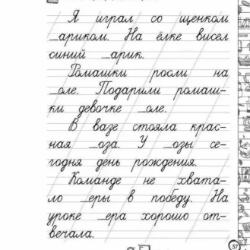 Я играл со щенком
_ариком. На ёлке висел
синий _арик.
Ромашки росли на
_оле. Подарили ромаш-
ки девочке _оле.
В вазе стояла крас-
ная _оза. У _озы се-
годня день рождения.
Команде не хвата-
ло _еры в победу. На
уроке _ера хорошо от-
вечала.